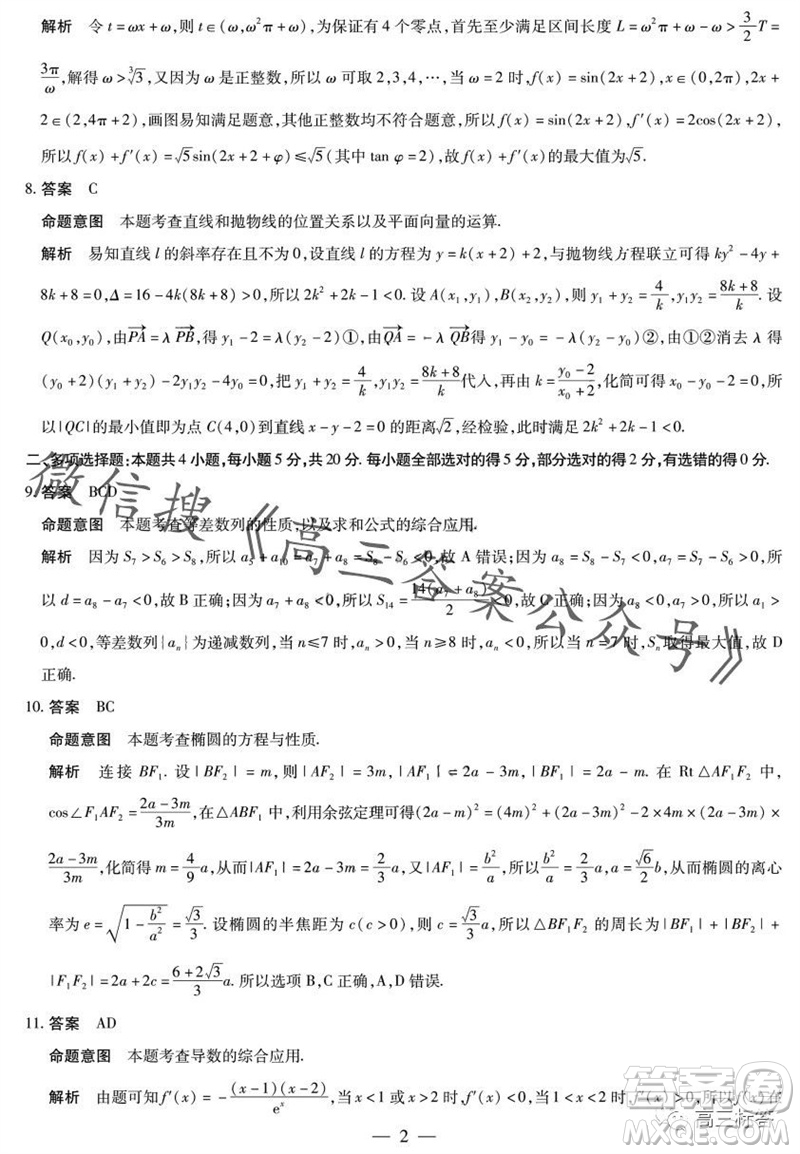 解析 令 t=ωx+ω,则 t∈(ω,ω²π+ω),为保证有 4 个零点,首先至少满足区间长度 L=ω²π+ω-ω>3/2T=
3π/ω,解得 ω>∛3,又因为 ω 是正整数,所以 ω 可取 2,3,4,…,当 ω=2 时,f(x)=sin(2x+2),x∈(0,2π),2x+
2∈(2,4π+2),画图易知满足题意,其他正整数均不符合题意,所以 f(x)=sin(2x+2),f′(x)=2cos(2x+2),
所以 f(x)+f′(x)=√5sin(2x+2+φ)≤√5(其中 tan φ=2),故 f(x)+f′(x)的最大值为√5.
8. 答案 C
命题意图 本题考查直线和抛物线的位置关系以及平面向量的运算.
解析 易知直线 l 的斜率存在且不为 0,设直线 l 的方程为 y=k(x+2)+2,与抛物线方程联立可得 ky²-4y+
8k+8=0,Δ=16-4k(8k+8)>0,所以 2k²+2k-1<0. 设 A(x₁,y₁),B(x₂,y₂),则 y₁+y₂=4/k,y₁y₂=(8k+8)/k. 设
Q(x₀,y₀),由PA=λ PB,得 y₁-2=λ(y₂-2)①,由QA=-λ QB得 y₁-y₀=-λ(y₂-y₀)②,由①②消去 λ 得
(y₀+2)(y₁+y₂)-2y₁y₂-4y₀=0,把 y₁+y₂=4/k,y₁y₂=(8k+8)/k代入,再由 k=(y₀-2)/(x₀+2),化简可得 x₀-y₀-2=0,所
以|QC|的最小值即为点 C(4,0)到直线 x-y-2=0 的距离√2,经检验,此时满足 2k²+2k-1<0.
二、多项选择题:本题共 4 小题,每小题 5 分,共 20 分. 每小题全部选对的得 5 分,部分选对的得 2 分,有选错的得 0 分.
9. 答案 BCD
命题意图 本题考查等差数列的性质,以及求和公式的综合应用.
解析 因为 S₇>S₆>S₈,所以 a₅+a₁₀=a₇+a₈=S₈-S₆<0,故 A 错误;因为 a₈=S₈-S₇<0,a₇=S₇-S₆>0,所
以 d=a₈-a₇<0,故 B 正确;因为 a₇+a₈<0,所以 S₁₄=14(a₇+a₈)/2<0,故 C 正确;因为 a₈<0,a₇>0,所以 a₁>
0,d<0,等差数列{aₙ}为递减数列,当 n≤7 时,aₙ>0,当 n≥8 时,aₙ<0,所以当 n=7 时,Sₙ取得最大值,故 D
正确.
10. 答案 BC
命题意图 本题考查椭圆的方程与性质.
解析 连接 BF₁. 设|BF₂|=m,则|AF₂|=3m,|AF₁|=2a-3m,|BF₁|=2a-m. 在 Rt△AF₁F₂ 中,
cos∠F₁AF₂=(2a-3m)/3m,在△ABF₁ 中,利用余弦定理可得(2a-m)²=(4m)²+(2a-3m)²-2×4m×(2a-3m)×
(2a-3m)/3m,化简得 m=4/9a,从而|AF₁|=2a-3m=2/3a,又|AF₁|=b²/a,所以b²/a=2/3a,b/a=√6/3,从而椭圆的离心
率为 e=√(1-b²/a²)=√3/3. 设椭圆的半焦距为 c(c>0),则 c=√3/3a,所以△BF₁F₂ 的周长为|BF₁|+|BF₂|+
|F₁F₂|=2a+2c=(6+2√3)/3a. 所以选项 B,C 正确,A,D 错误.
11. 答案 AD
命题意图 本题考查导数的综合应用.
解析 由题可知 f′(x)=-(x-1)(x-2)/eˣ,当 x<1 或 x>2 时,f′(x)<0,当 1<x<2 时,f′(x)>0,所以 f(x)在
— 2 —
微信搜《高三答案公众号》
答案圈
高三标答
MXQE.COM